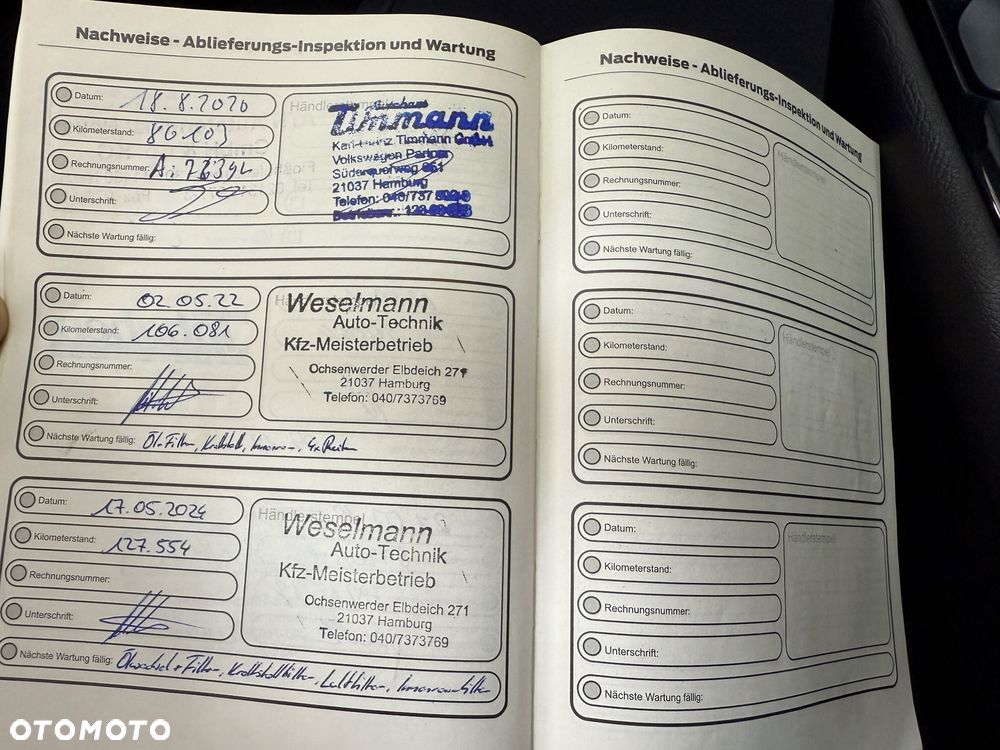 Nachweise - Ablieferungs-Inspektion und Wartung
Datum: 18.8.2020
Kilometerstand: 86103
Rechnungsnummer: A:
Unterschrift:
Nächste Wartung fällig:
Händlerstempel
Timmann
Karl-Heinz Timmann GmbH
Volkswagen Partner
Süderquerweg
21037 Hamburg
Telefon: 040/737
Datum: 02.05.22
Kilometerstand: 106.081
Rechnungsnummer:
Unterschrift:
Nächste Wartung fällig: Öl+Filter, Kraftstoff, Innenraum-, 4x Reifen
Weselmann
Auto-Technik
Kfz-Meisterbetrieb
Ochsenwerder Elbdeich 271
21037 Hamburg
Telefon: 040/7373769
Datum: 17.05.2024
Kilometerstand: 127.554
Rechnungsnummer:
Unterschrift:
Nächste Wartung fällig: Ölwechsel+Filter, Kraftstofffilter, Luftfilter, Innenraumfilter
Händlerstempel
Weselmann
Auto-Technik
Kfz-Meisterbetrieb
Ochsenwerder Elbdeich 271
21037 Hamburg
Telefon: 040/7373769
Nachweise - Ablieferungs-Inspektion und Wartung
Datum:
Kilometerstand:
Rechnungsnummer:
Unterschrift:
Nächste Wartung fällig:
Händlerstempel
Datum:
Kilometerstand:
Rechnungsnummer:
Unterschrift:
Nächste Wartung fällig:
Händlerstempel
Datum:
Kilometerstand:
Rechnungsnummer:
Unterschrift:
Nächste Wartung fällig:
Händlerstempel
OTOMOTO